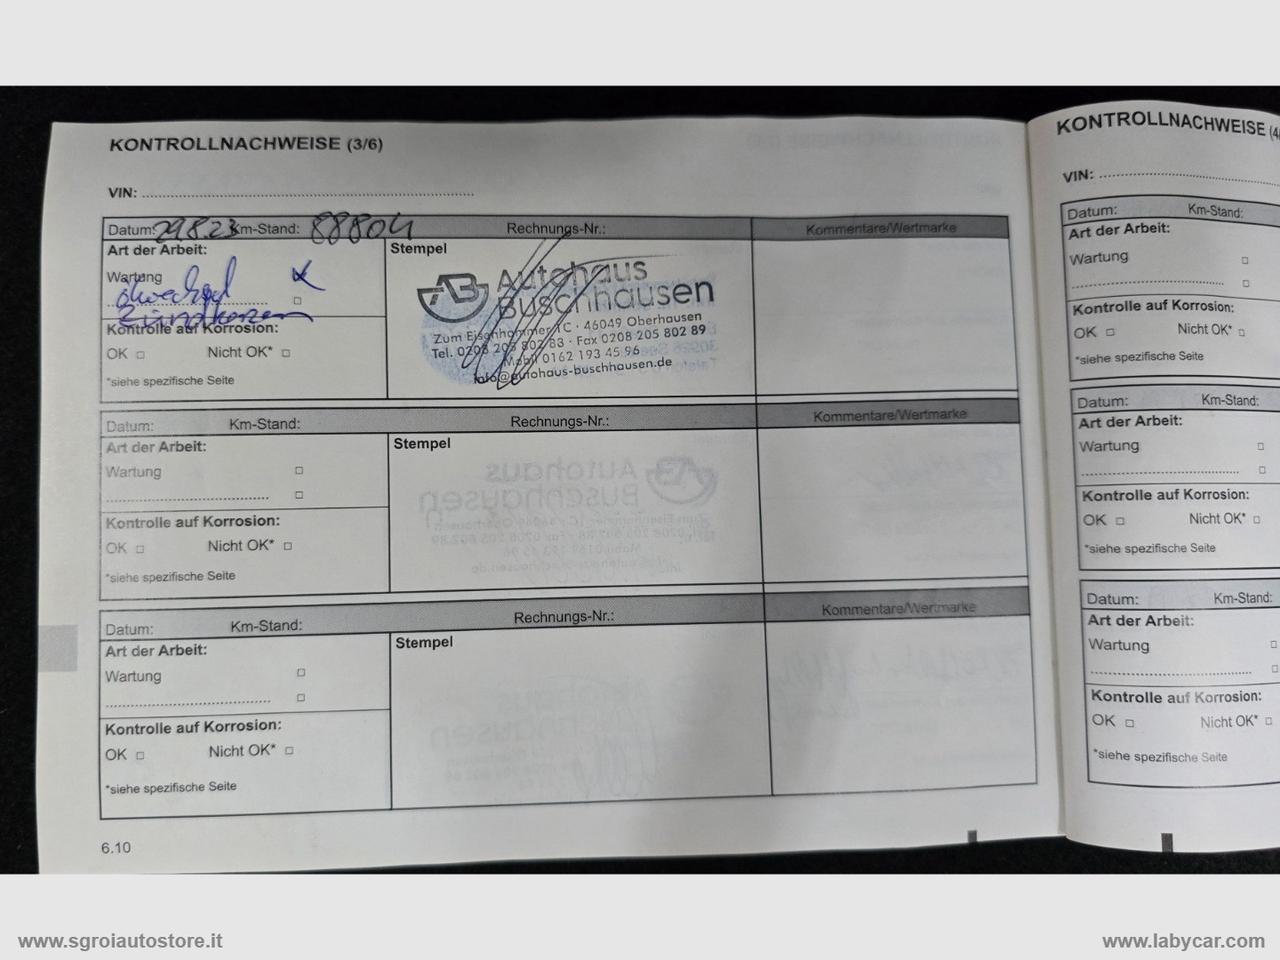 KONTROLLNACHWEISE (3/6)
VIN:
Datum: 29.8.23 Km-Stand: 88804 Rechnungs-Nr.: Kommentare/Wertmarke
Art der Arbeit:
Stempel
Wartung
Ölwechsel
Zündkerzen
Kontrolle auf Korrosion:
OK Nicht OK*
*siehe spezifische Seite
AB Autohaus
Buschhausen
Zum Eisenhammer 1C · 46049 Oberhausen
Tel. 0208 205 802 83 · Fax 0208 205 802 89
Mobil 0162 193 45 96
info@autohaus-buschhausen.de
Datum: Km-Stand: Rechnungs-Nr.: Kommentare/Wertmarke
Art der Arbeit:
Stempel
Wartung
Kontrolle auf Korrosion:
OK Nicht OK*
*siehe spezifische Seite
Datum: Km-Stand: Rechnungs-Nr.: Kommentare/Wertmarke
Art der Arbeit:
Stempel
Wartung
Kontrolle auf Korrosion:
OK Nicht OK*
*siehe spezifische Seite
6.10
KONTROLLNACHWEISE (4/
VIN:
Datum: Km-Stand:
Art der Arbeit:
Wartung
Kontrolle auf Korrosion:
OK Nicht OK*
*siehe spezifische Seite
Datum: Km-Stand:
Art der Arbeit:
Wartung
Kontrolle auf Korrosion:
OK Nicht OK*
*siehe spezifische Seite
Datum: Km-Stand:
Art der Arbeit:
Wartung
Kontrolle auf Korrosion:
OK Nicht OK*
*siehe spezifische Seite
www.sgroiautostore.it
www.labycar.com